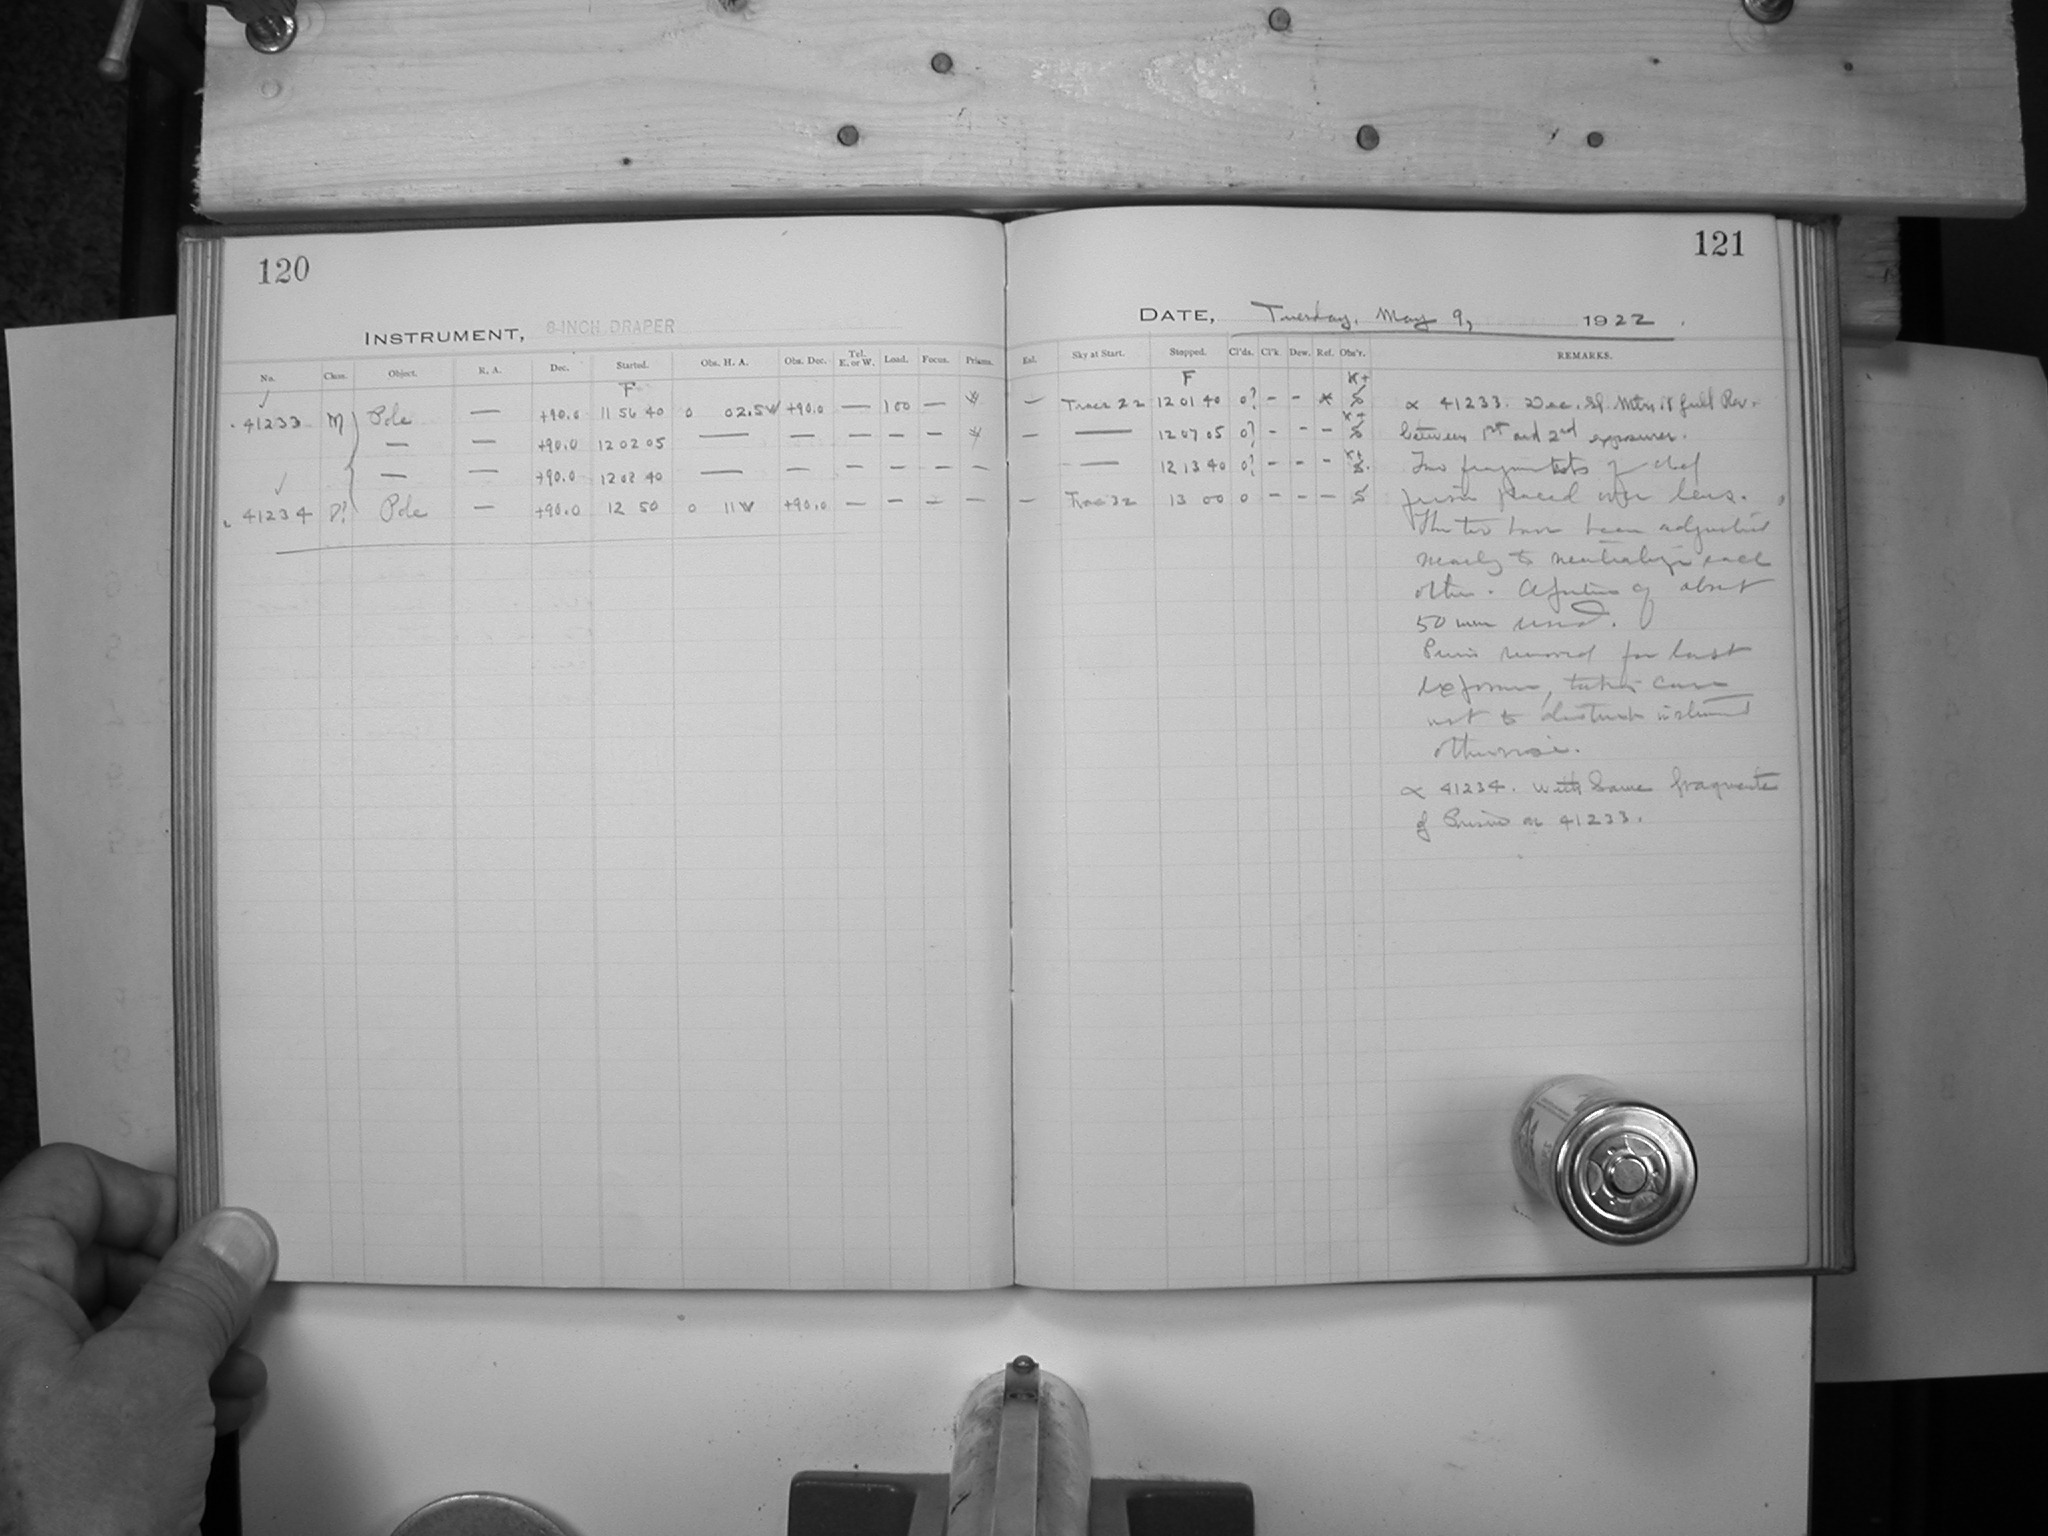 120
121
INSTRUMENT, 8-INCH DRAPER
DATE, Tuesday, May 9, 1922.
No. Class. Object. R. A. Dec. Started. Obs. H. A. Obs. Dec. Tel. E. or W. Load. Focus. Prisms. Eal. Sky at Start. Stopped. Cl'ds. Cl'k. Dew. Ref. Obs'r. REMARKS.
F F
41233 M Pole — +90.0 11 56 40 0 02.5W +90.0 — 100 — — Trace 22 12 01 40 0? - - * K+S
— — +90.0 12 02 05 — — — — — — — 12 07 05 0? - - - K+S
— — +90.0 12 08 40 — — — — — — — 12 13 40 0? - - - K+S.
41234 P? Pole — +90.0 12 50 0 11W +90.0 — — — — — Trace 32 13 00 0 - - - S
∝ 41233. Dec. Sl. Mtn full Rev.
between 1st and 2nd exposures.
Two fragments of
prism placed over lens.
The two have been adjusted
nearly to neutralize each
other. Aperture of about
50 mm used.
Prism removed for last
exposure, taking care
not to disturb instrument
otherwise.
∝ 41234. With Same fragments
of Prism as 41233.